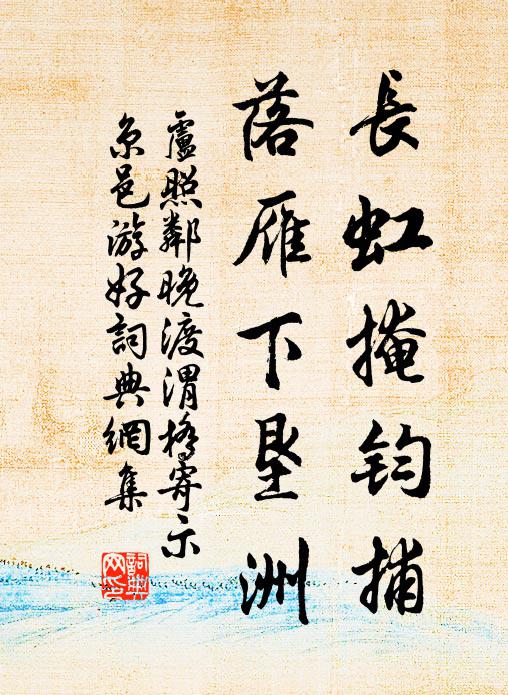 長虹掩鈞捕
落雁下垦洲
盧照鄰晚渡渭橋寄示
京邑游好詞典網集
詞典